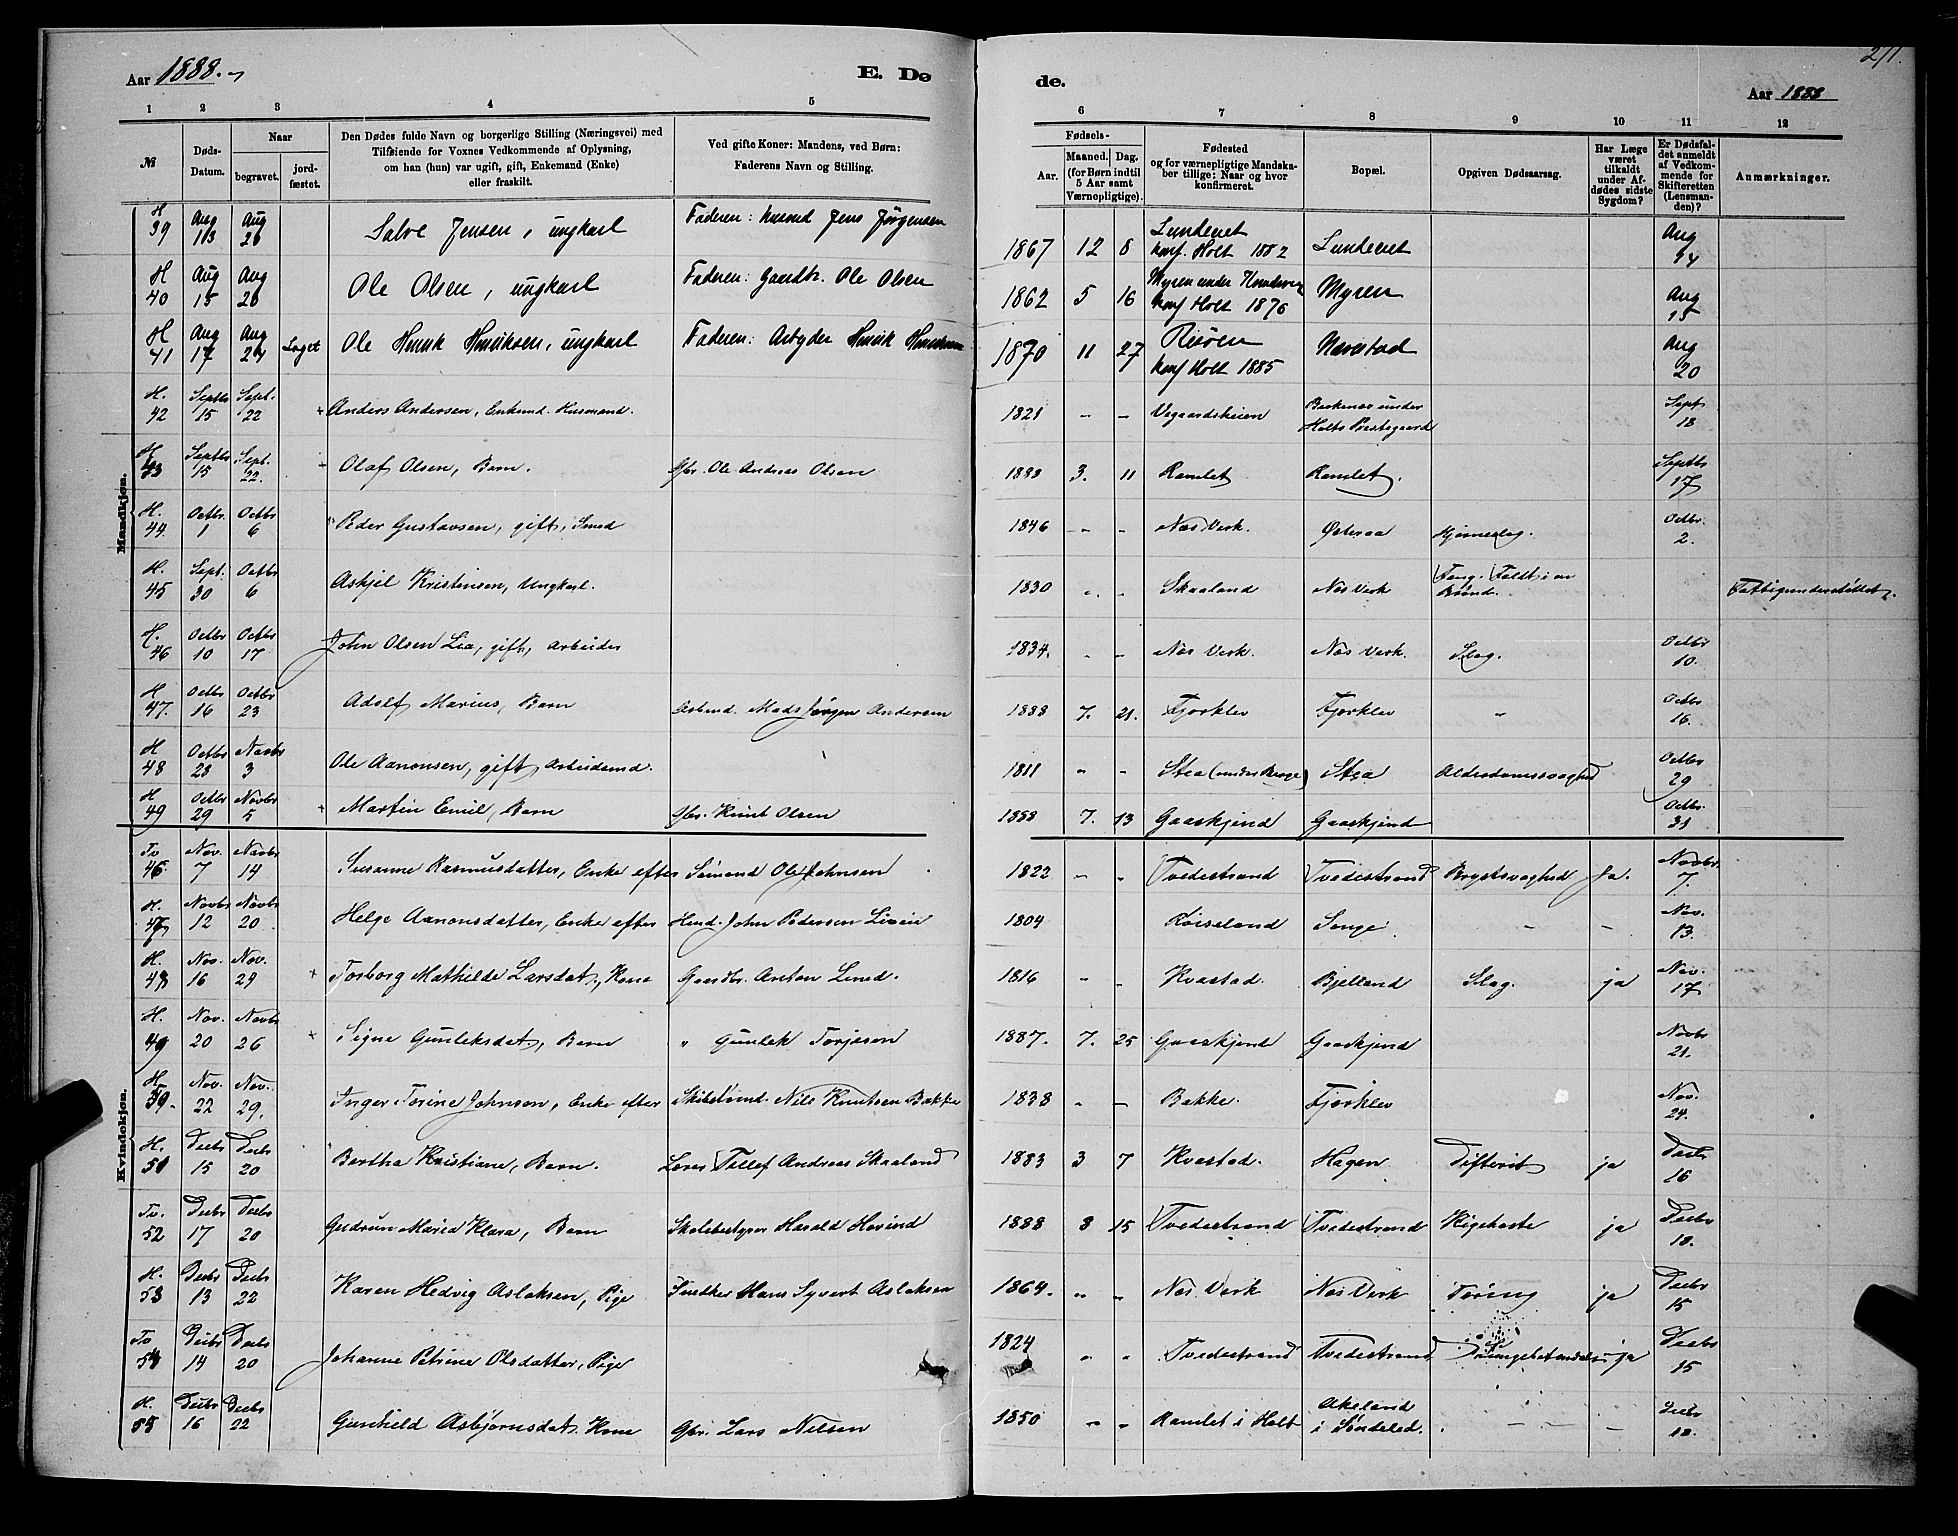 Aar 1888.
E. Døde.
271.
Aar 1888
1 2 3 4 5 6 7 8 9 10 11 12
№
Døds-Datum.
Naar
begravet.
jordfæstet.
Den Dødes fulde Navn og borgerlige Stilling (Næringsvei) med
Tilføiende for Voxnes Vedkommende af Oplysning,
om han (hun) var ugift, gift, Enkemand (Enke)
eller fraskilt.
Ved gifte Koner: Mandens, ved Børn:
Faderens Navn og Stilling.
Fødsels-
Aar.
Maaned.
Dag.
(for Børn indtil
5 Aar samt
Værnepligtige).
Fødested
og for værnepligtige Mandskaber tillige: Naar og hvor
konfirmeret.
Bopæl.
Opgiven Dødsaarsag.
Har Læge
været
tilkaldt
under Afdødes sidste
Sygdom?
Er Dødsfaldet anmeldt
af Vedkommende for
Skifteretten
(Lensmanden)?
Anmærkninger.
Mandkjøn.
H 39 Aug 13 Aug 26 Salve Jensen, ungkarl Faderen: Jens Jørgensen 1867 12 8 Lundevet konf. Holt 1882 Lundevet Aug 14
H 40 Aug 15 Aug 26 Ole Olsen, ungkarl Faderen: Gaardbr. Ole Olsen 1862 5 16 Myren under konf Holt 1876 Myren Aug 15
H 41 Aug 17 Aug 24 Ole Henrik Henriksen, ungkarl Faderen: Arbyder Henrik Henriksen 1870 11 27 Risöen konf Holt 1885 Navestad Aug 20
H. 42 Septbr 15 Sept. 22 + Anders Andersen, Enkemd. Husmand. 1821 - - Vegaardsheien under Holts Præstegaard Sept 18
H 43 Septbr 15 Sept. 22. + Olaf Olsen, Barn. Gbr. Ole Andreas Olsen 1888 3. 11 Ramlet Ramlet. Septbr 17
H. 44. Octbr. 1 Octbr 6 Peder Gustavsen, gift, Smed 1846 - - Næs Verk. Østeraa Hjerneslag. Octbr. 2.
H. 45 Sept. 30 Octbr 6 Askjel Kristensen, Ungkarl. 1830 " - Skaaland Næs Verk Faldt i en Brønd. Fattigunderstøttet.
H. 46 Octbr 10 Octbr 17 John Olsen Lia, gift, Arbeider 1834. - - Næs Verk. Næs Verk. Slag. Octbr 10.
H 47. Octbr 16 Octbr 23 Adolf Marius, Barn Arbmd. Mads Jørgen Andersen 1888 7. 21. Fjorklev Fjorklev " Octbr 16.
H 48 Octbr 28 Novbr 3 Ole Aanonsen, gift, Arbeidsmd. 1811 " - Stea (under Berge) Stea Alderdomssvaghed Octbr 29
H 49 Octbr 29 Novbr 5 + Martin Emil, Barn Gbr. Knut Olsen 1888 7. 13 Gaaskjend Gaaskjend Octbr. 31
Kvindekjøn.
Tv 46. Nov. 7 Novbr 14 Susanne Rasmusdatter, Enke efter Sømand Ole Johnsen 1822 - " Tvedestrand Tvedestrand Brystsvaghed Ja. Novbr 7.
H. 47 Novbr 12 Novbr 20 Helge Aanonsdatter, Enke efter John Pedersen 1804 Røiseland Songe - - Nov. 13.
H. 48 Nov. 16 Nov. 29 + Torborg Mathilde Larsdat., Kone Gaardbr. Anton 1816 " - Kvastad. Bjelland Slag. ja Nov. 17
H. 49 Nov. 20 Novbr 26 + Signe Gunleksdat, Barn " Gunlek Torjesen 1887. 7. 25 Gaaskjend Gaaskjend Novbr 21.
H. 50. Nov. 22 Nov. 29, Inger Torine Johnsen, Enke efter Skibstømd. Nils Knutsen Bakke 1838 " - Bakke. Fjorklev Nov. 24.
H. 51 Decbr 15 Decbr 20 Bertha Kristiane, Barn. Lærer Tellef Andreas Skaaland 1883 3 7 Kvastad. Hagen Difterit ja Decbr 16
Tv. 52 Decbr 17 Decbr 20 Gudrun Maria Klara, Barn Skolebestyrer Harald Hovind 1888 8 15 Tvedestrand Tvedestrand Kighoste ja Decbr 18.
H. 53 Decbr 13 Decbr 22 Karen Hedvig Aslaksen, Pige Snedker Hans Syvert Aslaksen 1864. " " Næs Verk Næs Verk Tæring ja Decbr 15
Tv 54 Decbr 14 Decbr 20 Johanne Petrine Olsdatter, Pige 1824 " " Tvedestrand Tvedestrand Lungebetændelse ja Decbr 15
H. 55 Decbr 16 Decbr 22 Gunhild Asbjørnsdat. Kone Gbr. Lars Nilsen 1850 " " Ramlet i Holt Akeland i Søndeled. - - - Decbr 18.